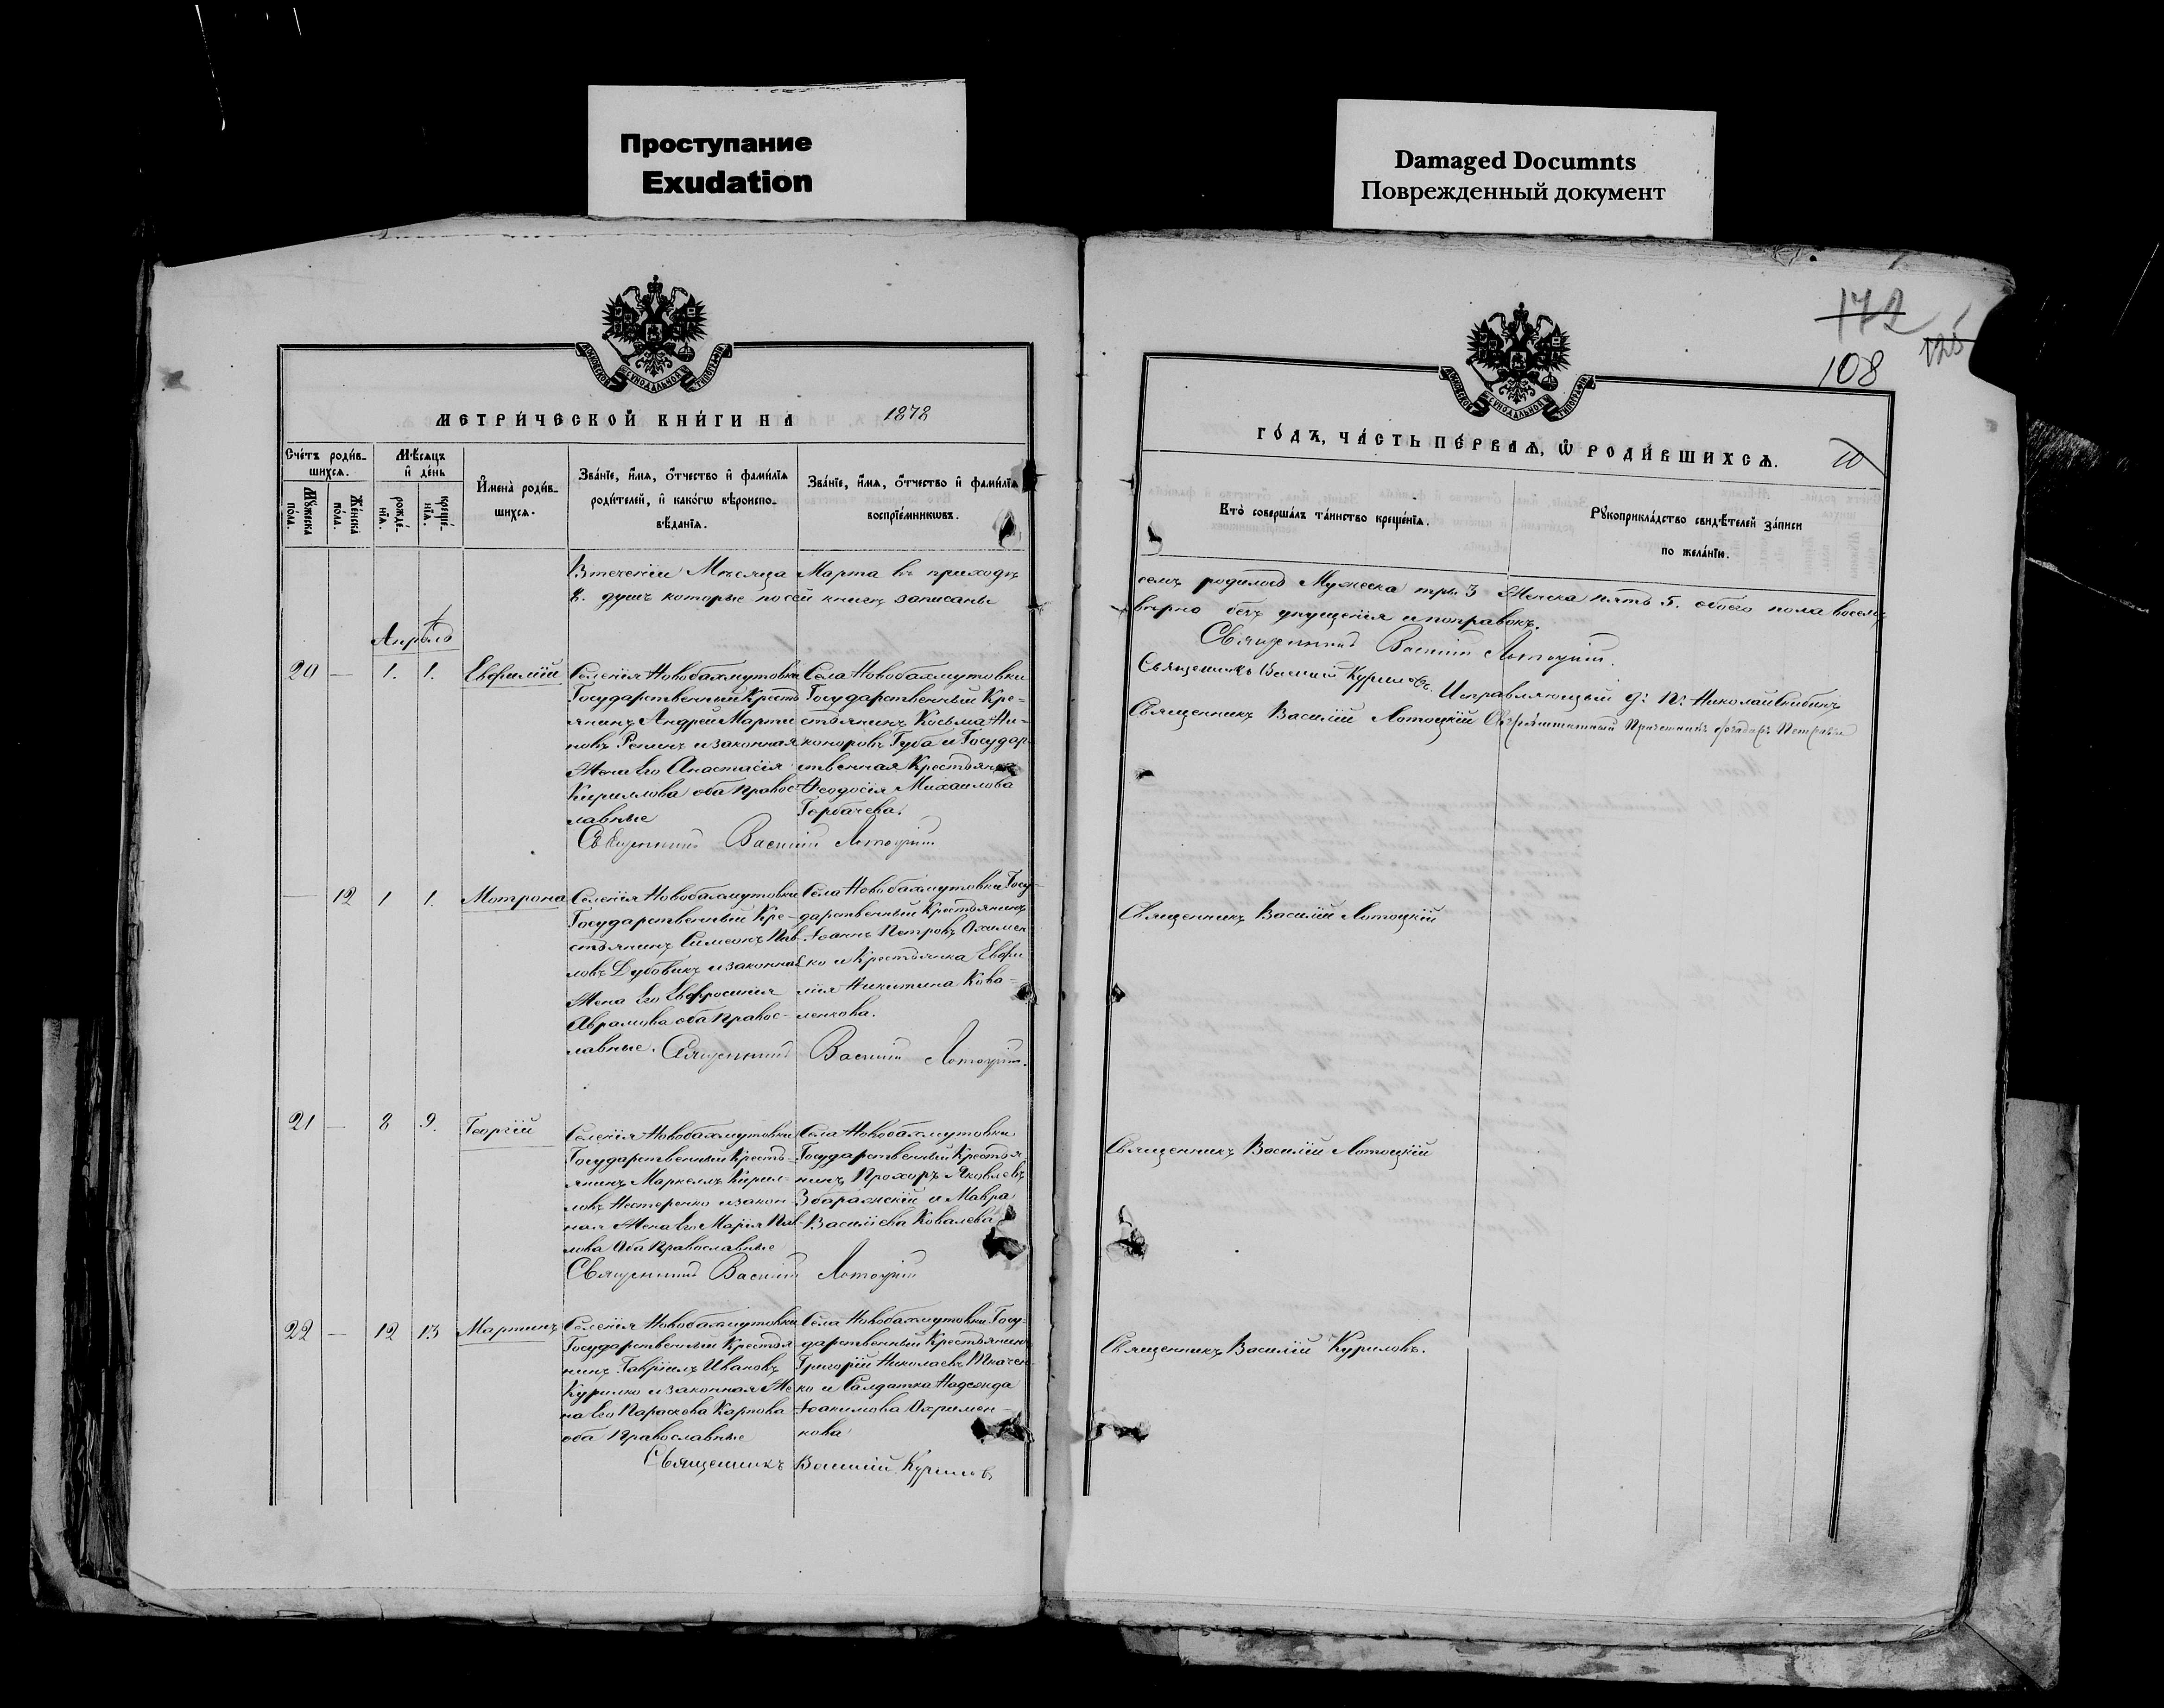 Проступание
Exudation
Damaged Documnts
Поврежденный документ
172
125
108
МЕТРИ́ЧЕСКОЙ КНИ́ГИ НА 1878
Сче́тъ роди́в-
шихсѧ.
Мꙋ́жеска
по́ла.
Же́нска
по́ла.
Мѣ́сѧцъ
и҆ де́нь
рожде́-
нїѧ.
креще́-
нїѧ.
И҆мена̀ роди́в-
шихсѧ.
Зва́нїе, и҆́мѧ, ѻ҆́тчество и҆ фами́лїѧ
роди́телей, и҆ како́гѡ вѣроиспо-
вѣ́данїѧ.
Зва́нїе, и҆́мѧ, ѻ҆́тчество и҆ фами́лїѧ
воспрїе́мникѡвъ.
Втеченіи Мѣсяца Марта въ приходѣ
8. душъ которые по сей книгѣ записаны
Апрѣль
20 — 1. 1. Евфимій
Селенія Новобахмутовки
Государственный Кресть
янинъ Андрей Марти
новъ Репинъ и законная
Жена Его Анастасія
Кириллова оба Правос-
лавные
Села Новобахмутовки
Государственный Кре-
стьянинъ Косьма Ни-
коноровъ Губа и Государ
ственная Крестьянка
Ѳеодосія Михаилова
Горбачева.
Священникъ Василій Лотоцкій
— 12 1 1. Мотрона
Селенія Новобахмутовки
Государственный Кре-
стьянинъ Симеонъ Пав-
ловъ Дубовикъ и законная
Жена Его Евфросинія
Аврамова оба Правос-
лавные.
Села Новобахмутовки Госу-
дарственный Крестьянинъ
Іоаннъ Петровъ Охимен
ко и Крестьянка Евфи
мія Никитина Кова-
ленкова.
Священникъ Василій Лотоцкій.
21 — 8 9. Георгій
Селенія Новобахмутовки
Государственный Кресть-
янинъ Маркеллъ Кирил-
ловъ Нестеренко и закон
ная Жена Его Марія Пав-
лова Оба Православные
Села Новобахмутовки
Государственный Крестья
нинъ Прохоръ Яковлевъ
Збаражскій и Мавра
Васильева Ковалева
Священникъ Василій Лотоцкій
22 — 12 13 Мартинъ
Селенія Новобахмутовки
Государственный Крестья-
нинъ Гавріилъ Ивановъ
Курилко и законная Же
на Его Параскева Карпова
оба Православные
Села Новобахмутовки Госу-
дарственный Крестьянинъ
Григорій Николаевъ Ткачен
ко и Салдатка Надежда
Іоакимова Охримен-
кова
Священникъ Василій Куриловъ
ГО́ДЪ, ЧА́СТЬ ПЕ́РВАѦ, Ѽ РОДИ́ВШИХСѦ.
Кто̀ соверша́лъ та́инство креще́нїѧ.
Рꙋкоприкла́дство свидѣ́телей за́писи
по жела́нїю.
семъ родилось Мужеска три 3 Женска пять 5. обоего пола восемь
вѣрно безъ упущенія и поправокъ.
Священникъ Василій Лотоцкій.
Священникъ Василій Куриловъ. Исправляющій д: П: Николай Скибинъ
Священникъ Василій Лотоцкій Сверхштатный Причетникъ Петровъ
Священникъ Василій Лотоцкій
Священникъ Василій Лотоцкій
Священникъ Василій Куриловъ.